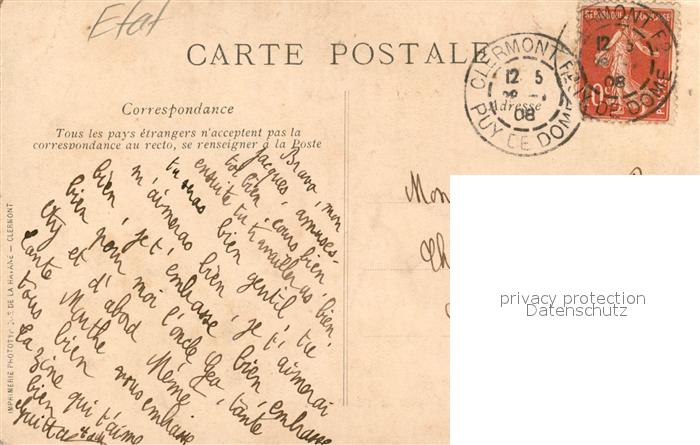 Etat
CARTE POSTALE
Correspondance
Tous les pays étrangers n'acceptent pas la
correspondance au recto, se renseigner à la Poste
Adresse
CLERMONT
12 5
08
PUY DE DOME
12
08
DE DOME
Bravo, mon
Jacques, amuses-
toi bien, cours bien,
ensuite tu travailleras bien,
tu seras bien gentil, tu
m'aimeras bien, je t'aimerai
bien, je t'embrasse bien, embrasse
bien pour moi l'oncle Geo, tante
et d'abord Mémé,
tante Marthe
vous embrasse
tous bien
La zine qui t'aime
bien
Mon
privacy protection
Datenschutz
IMPRIMERIE PHOTOTY DE LA HAYANE — CLERMONT